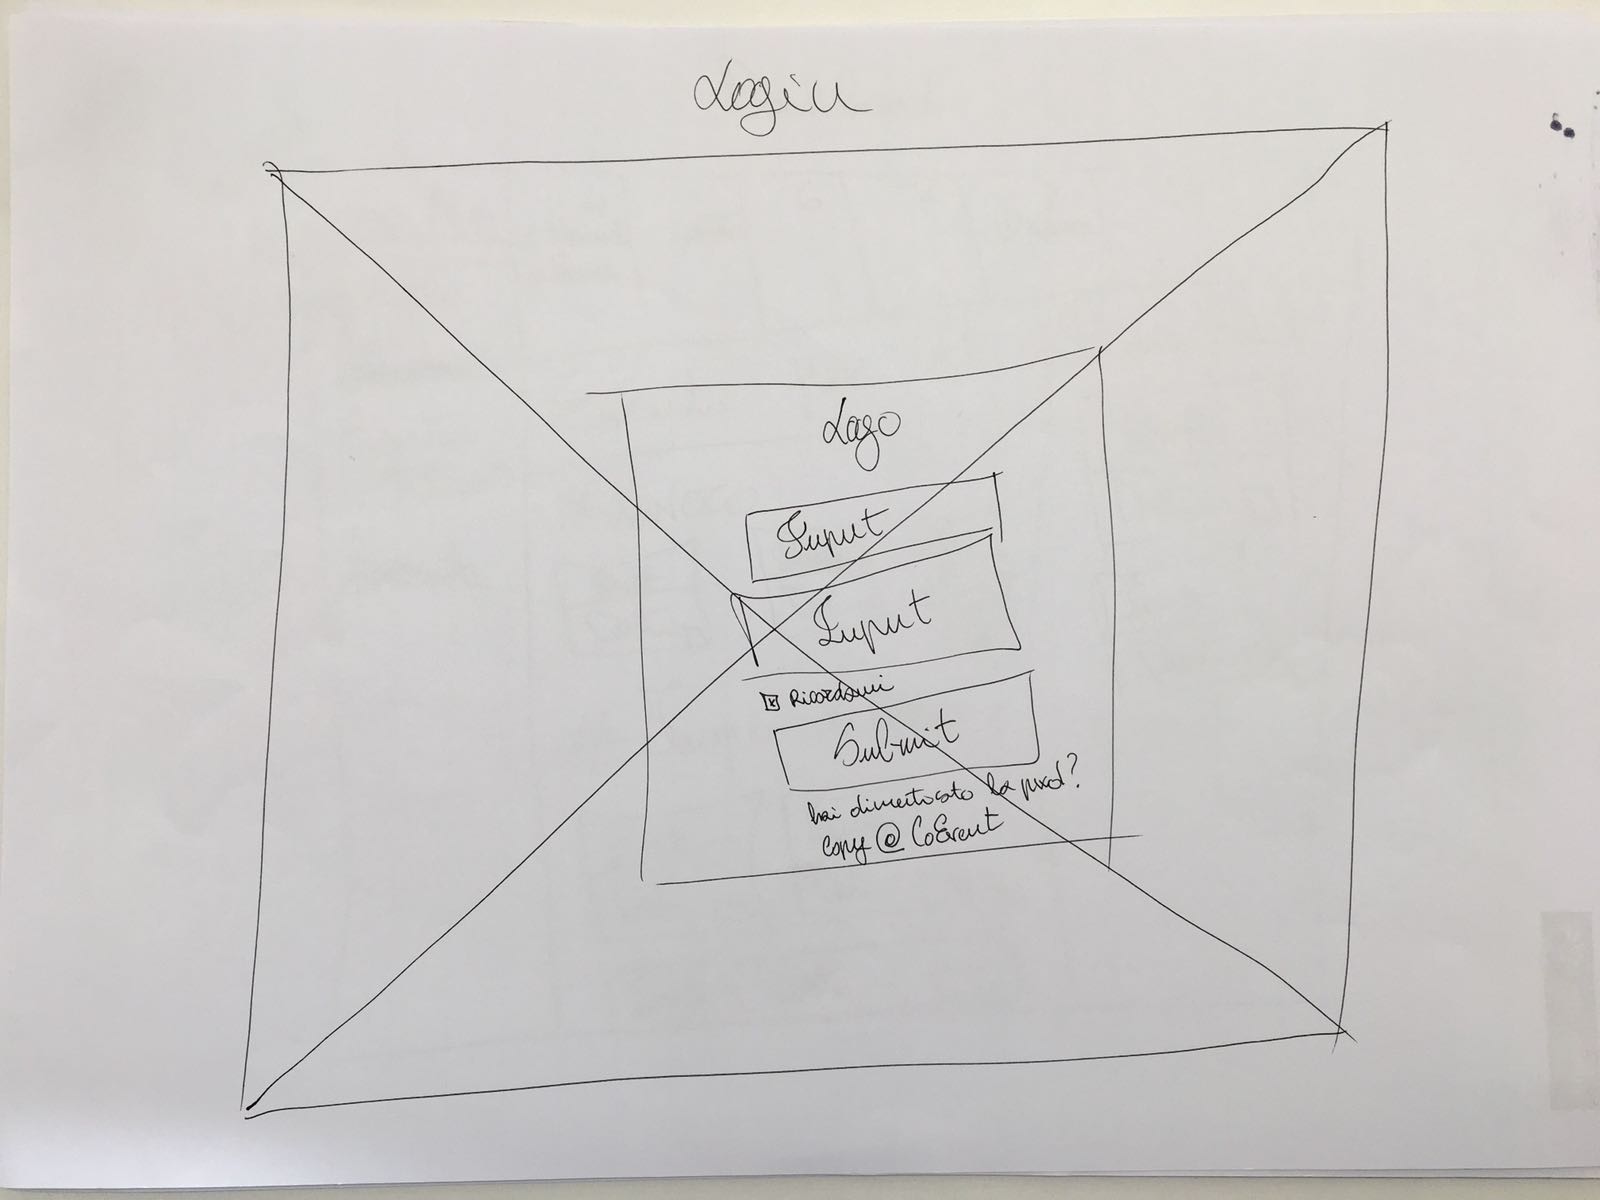 Login
Logo
Input
Input
Ricordami
Submit
hai dimenticato la pwd?
copy @ CoEvent